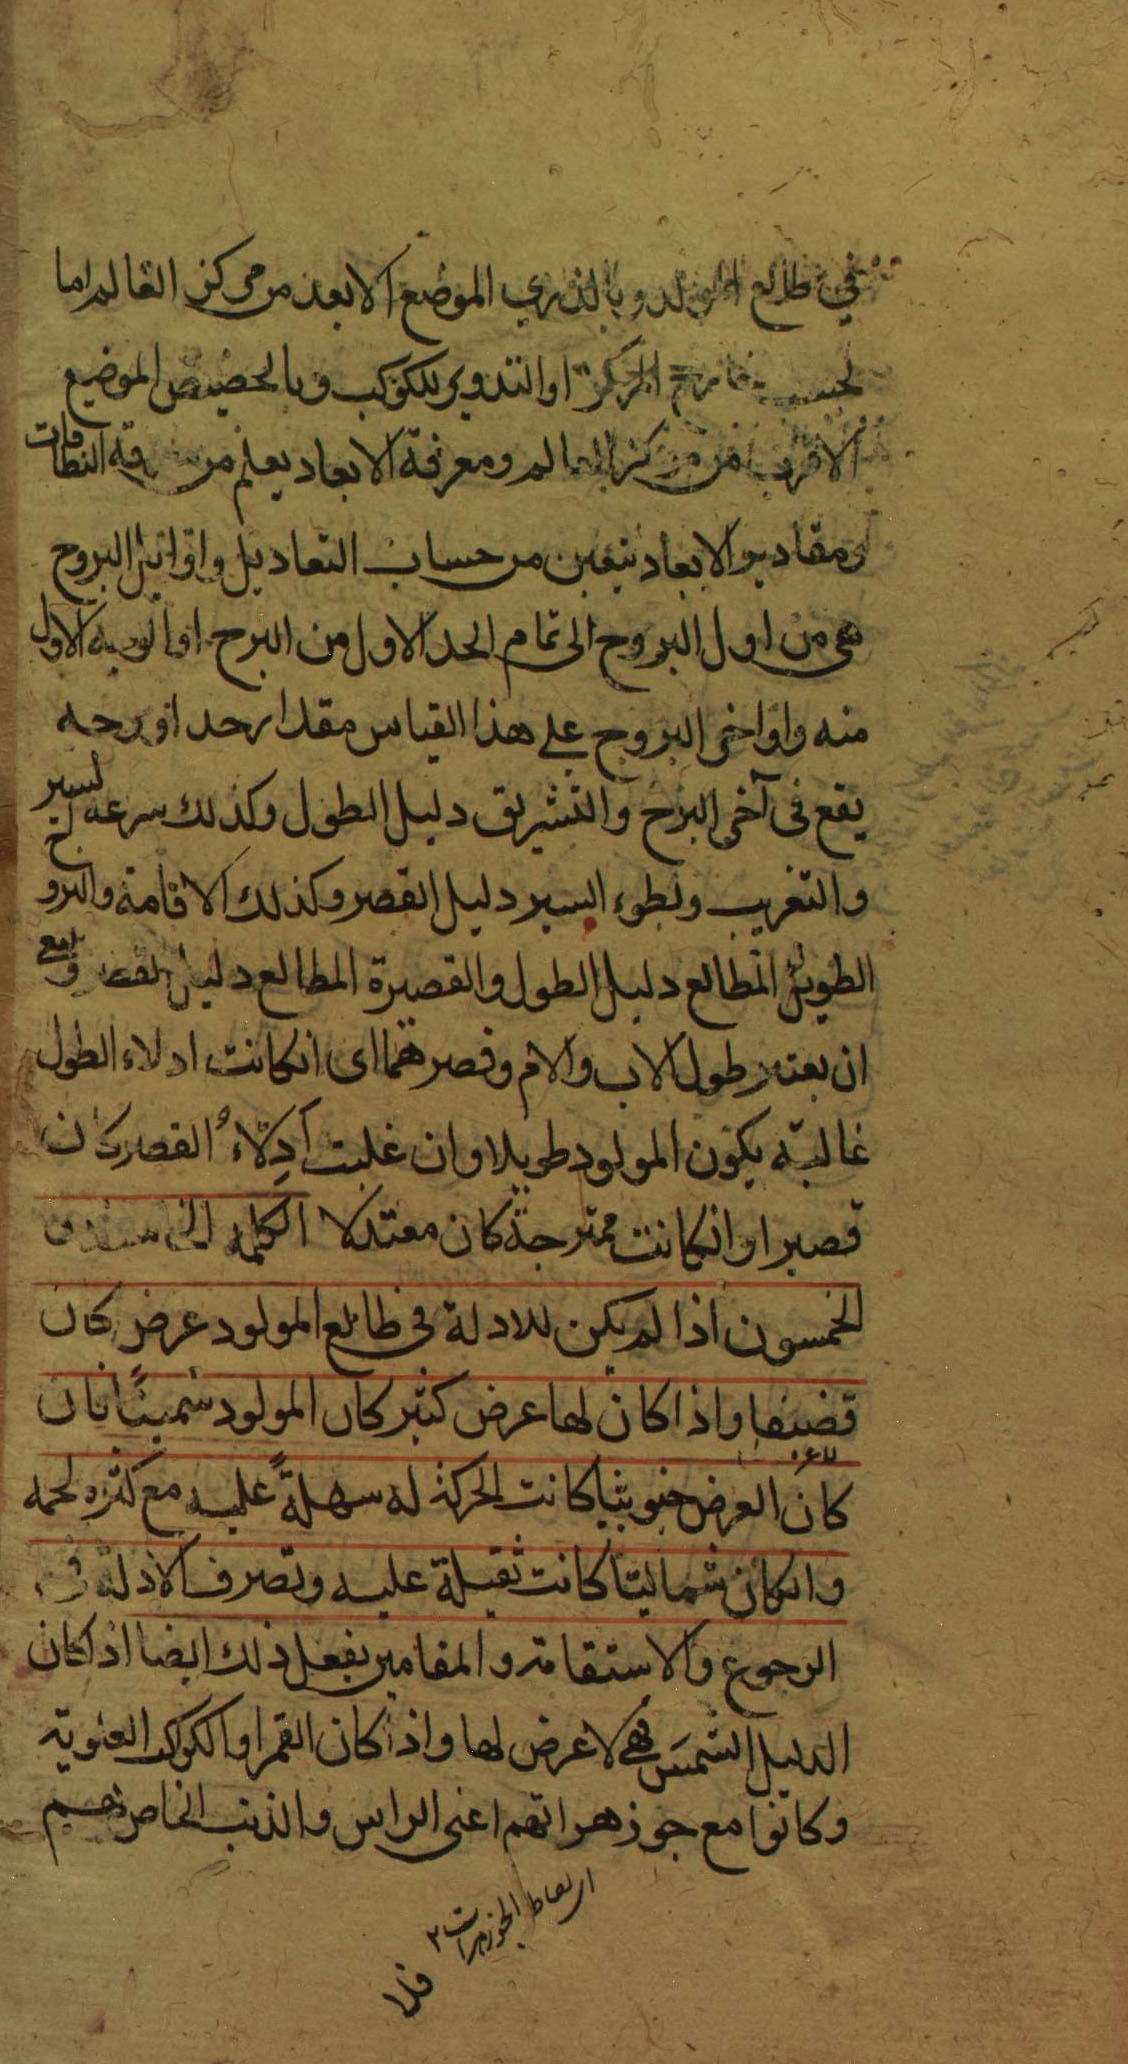 في طالع المولد وبالذروة الموضع الابعد من مركز العالم اما
بحسب خارج المركز او التدوير للكوكب وبالحضيض الموضع
الاقرب من مركز العالم ومعرفة الابعاد يعلم من النطاقات
ومقادير الابعاد تبين من حساب التعاديل واوائل البروج
هي من اول البروج الى تمام الحد الاول من البرج او الوجه الاول
منه واواخر البروج على هذا القياس مقدار حد او وجه
يقع في آخر البرج والتشريق دليل الطول وكذلك سرعة السير
والتغريب وبطوء السير دليل القصر وكذلك الاقامة والبروج
الطويلة المطالع دليل الطول والقصيرة المطالع دليل القصر
ان يعتبر طول الاب والام وقصرهما اى انكانت ادلاء الطول
غالبة يكون المولود طويلا وان غلبت أدِلّاءُ القصر كان
قصيرا وانكانت ممتزجة كان معتدلا الكلمة
الخمسون اذا لم يكن للادلة في طالع المولود عرض كان
قضيفا واذا كان لها عرض كثير كان المولود سمينًا فان
كان العرض جنوبيا كانت الحركة له سهلةً عليه مع كثرة لحمه
وانكان شماليا كانت ثقيلة عليه وتصرف الادلة في
الرجوع والاستقامة والمقامين يفعل ذلك ايضا اذا كان
الدليل الشمس فهي لا عرض لها واذا كان القمر او الكواكب العلوية
وكانوا مع جوزهراتهم اعني الراس والذنب الخاص بهم
الجوزهرات
فلا